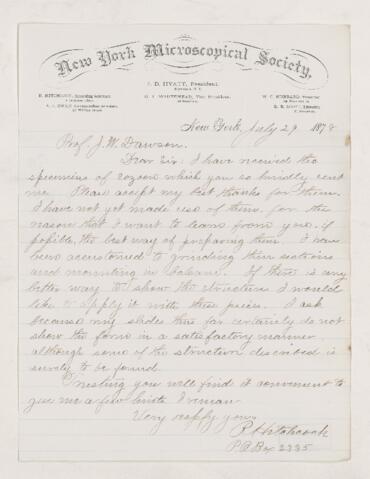 New York Microscopical Society,
J. D. HYATT, President,
R. HITCHCOCK,
W. C. HUBBARD,
New York, July 29 1878
Prof. J. W. Dawson.
Dear Sir: I have received the
specimens of eozoon which you so kindly sent
me. Please accept my best thanks for them.
I have not yet made use of them, for the
reason that I want to learn from you, if
possible, the best way of preparing them. I have
been accustomed to grinding thin sections
and mounting in balsam. If there is any
better way to show the structure I would
like to apply it with these pieces. I ask
because my slides thus far certainly do not
show the form in a satisfactory manner
although some of the structure described is
surely to be found.
Trusting you will find it convenient to
give me a few hints I remain
Very resp'fy yours
R Hitchcock
P.O. Box 2335